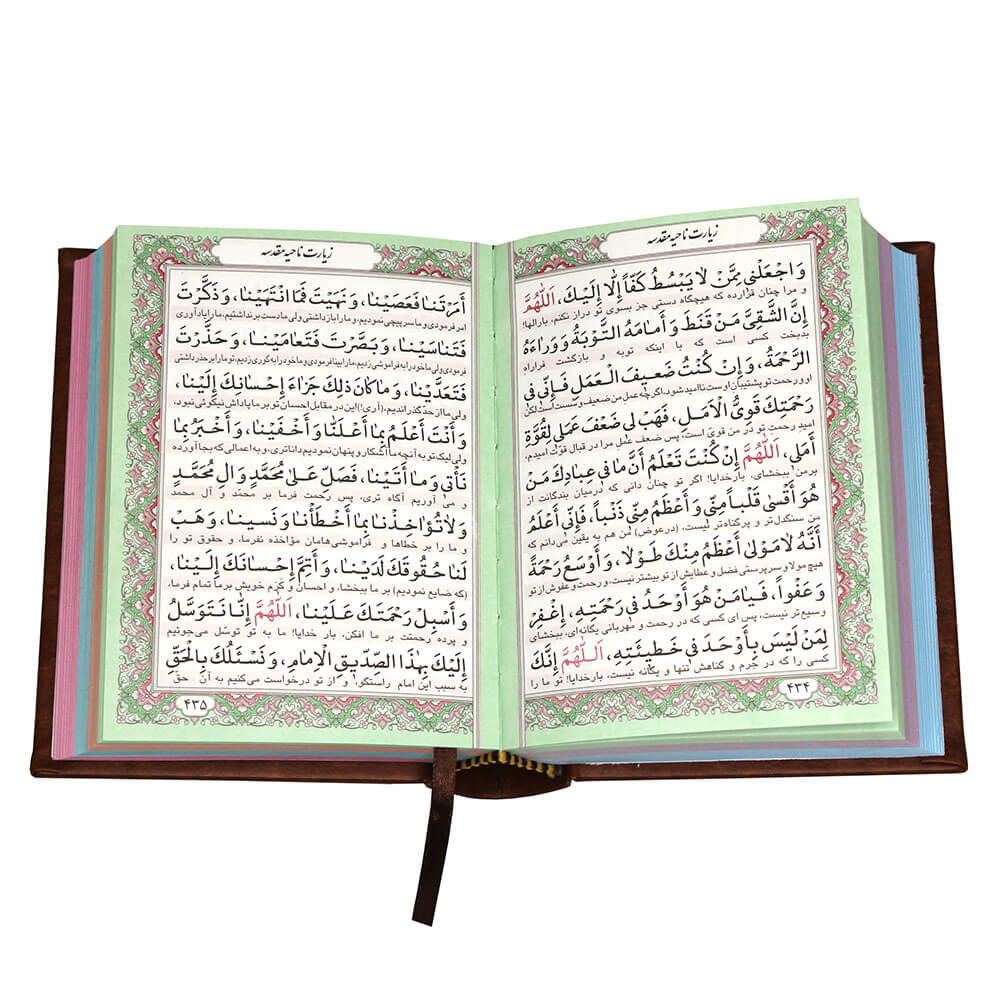 زیارت ناحیه مقدسه
وَ اجْعَلْني مِمَّنْ لا يَبْسُطُ كَفّاً إِلّا إِلَيْكَ، اَللّٰهُمَّ
و مرا چنان قرارده که هیچگاه دستی جز بسوی تو دراز نکنم، بارالها!
إِنَّ الشَّقِيَّ مَنْ قَنَطَ وَ أَمامَهُ التَّوْبَةُ وَ وَراءَهُ
بدبخت کسی است که با اینکه توبه و بازگشت فراراه
الرَّحْمَةُ، وَ إِنْ كُنْتُ ضَعيفَ الْعَمَلِ فَإِنّي في
او و رحمت تو پشتیبان اوست ناامید شود، اگر چه عمل من ضعیف و سست است لکن
رَحْمَتِكَ قَوِيُّ الْأَمَلِ، فَهَبْ لي ضَعْفَ عَمَلي لِقُوَّةِ
امید رحمت تو در من قوی است، پس ضعف عمل مرا در قبال قوت امیدم،
أَمَلي، اَللّٰهُمَّ إِنْ كُنْتَ تَعْلَمُ أَنَّ ما في عِبادِكَ مَنْ
برمن ببخشای، بارخدایا! اگر تو چنان دانی که درمیان بندگانت از
هُوَ أَقْسىٰ قَلْباً مِنّي وَ أَعْظَمُ مِنّي ذَنْباً، فَإِنّي أَعْلَمُ
من سنگدل تر و پرگناه تر نیست، (درعوض) من هم به یقین می دانم که
أَنَّهُ لا مَوْلىٰ أَعْظَمُ مِنْكَ طَوْلاً، وَ أَوْسَعُ رَحْمَةً
هیچ مولا و سرپرستی فضل و عطایش از تو بیشتر نیست، و رحمت و عفوش از تو
وَ عَفْواً، فَيا مَنْ هُوَ أَوْحَدُ في رَحْمَتِهِ، إِغْفِرْ
وسیع تر نیست، پس ای کسی که در رحمت و مهربانی یگانه ای، ببخشای
لِمَنْ لَيْسَ بِأَوْحَدَ في خَطيئَتِهِ، اَللّٰهُمَّ إِنَّكَ
کسی را که در جرم و گناهش تنها و یگانه نیست، بارخدایا! تو ما را
۴۳۴
زیارت ناحیه مقدسه
أَمَرْتَنا فَعَصَيْنا، وَ نَهَيْتَ فَمَا انْتَهَيْنا، وَ ذَكَّرْتَ
امر فرمودی و ما سرپیچی نمودیم، و ما را باز داشتی ولی ما دست برنداشتیم، ما را یادآوری
فَتَناسَيْنا، وَ بَصَّرْتَ فَتَعامَيْنا، وَ حَذَّرْتَ
فرمودی ولی ما خود را به فراموشی زدیم، ما را بینا فرمودی و ما خود را به کوری زدیم، تو ما را برحذر داشتی
فَتَعَدَّيْنا، وَ ما كانَ ذٰلِكَ جَزاءَ إِحْسانِكَ إِلَيْنا،
ولی ما از حدّ گذراندیم، (آری!) این در مقابل احسان تو بر ما پاداش نیکوئی نبود،
وَ أَنْتَ أَعْلَمُ بِما أَعْلَنّا وَ أَخْفَيْنا، وَ أَخْبَرُ بِما
ولی لیک تو به آنچه ما آشکار و پنهان نمودیم داناتری، و به اعمالی که بجا آورده
نَأْتي وَ ما أَتَيْنا، فَصَلِّ عَلىٰ مُحَمَّدٍ وَ آلِ مُحَمَّدٍ
و می آوریم آگاه تری، پس رحمت فرما بر محمد و آل محمد
وَ لا تُؤاخِذْنا بِما أَخْطَأْنا وَ نَسينا، وَ هَبْ
و ما را بر خطاها و فراموشی هامان مؤاخذه نفرما، و حقوق تو را
لَنا حُقُوقَكَ لَدَيْنا، وَ أَتِمَّ إِحْسانَكَ إِلَيْنا،
(که ضایع نمودیم) بر ما ببخشا، و احسان و کرم خویش برما تمام فرما،
وَ أَسْبِلْ رَحْمَتَكَ عَلَيْنا، اَللّٰهُمَّ إِنّا نَتَوَسَّلُ
و پرده رحمتت بر ما افکن، بار خدایا! ما به تو توسّل می جوئیم
إِلَيْكَ بِهٰذَا الصِّدّيقِ الْإِمامِ، وَ نَسْئَلُكَ بِالْحَقِّ
به سبب این امام راستگو، و از تو درخواست می کنیم به آن حق
۴۳۵